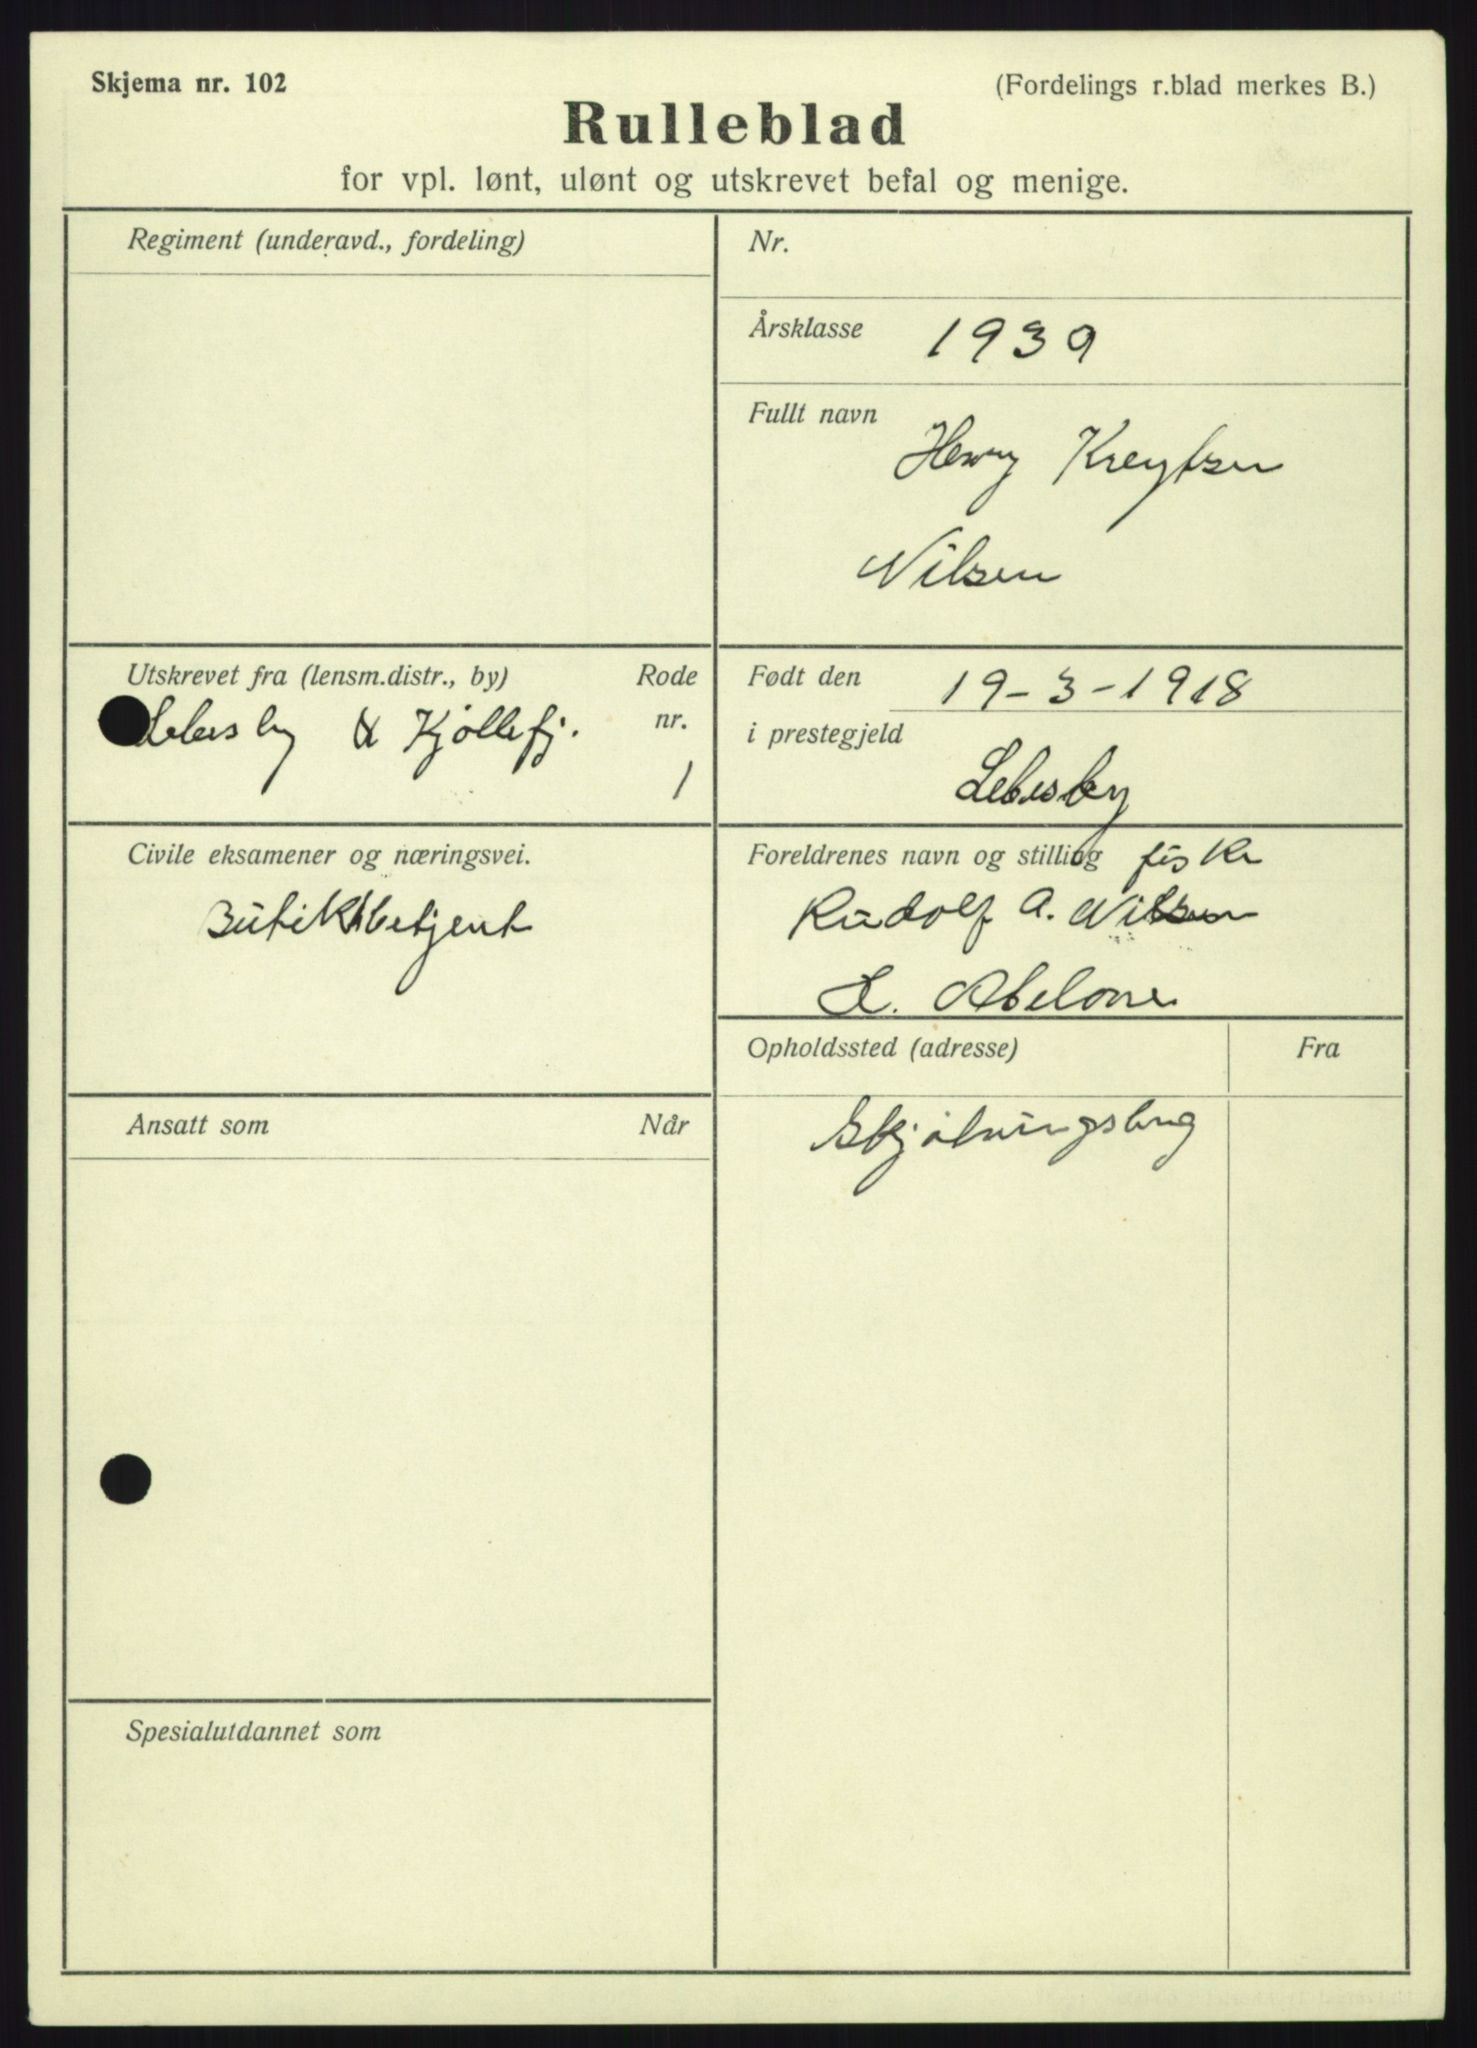 Skjema nr. 102
(Fordelings r.blad merkes B.)
Rulleblad
for vpl. lønt, ulønt og utskrevet befal og menige.
Regiment (underavd., fordeling)
Nr.
Årsklasse 1939
Fullt navn
Henry Kreytsen
Nilsen
Utskrevet fra (lensm.distr., by)
Rode
nr.
Lebesby & Kjøllefj.
1
Født den 19-3-1918
i prestegjeld
Lebesby
Civile eksamener og næringsvei.
Butikkbetjent
Foreldrenes navn og stilling fisker
Rudolf A. Nilsen
L. Abelone
Opholdssted (adresse)
Fra
Skjötningsberg
Ansatt som
Når
Spesialutdannet som